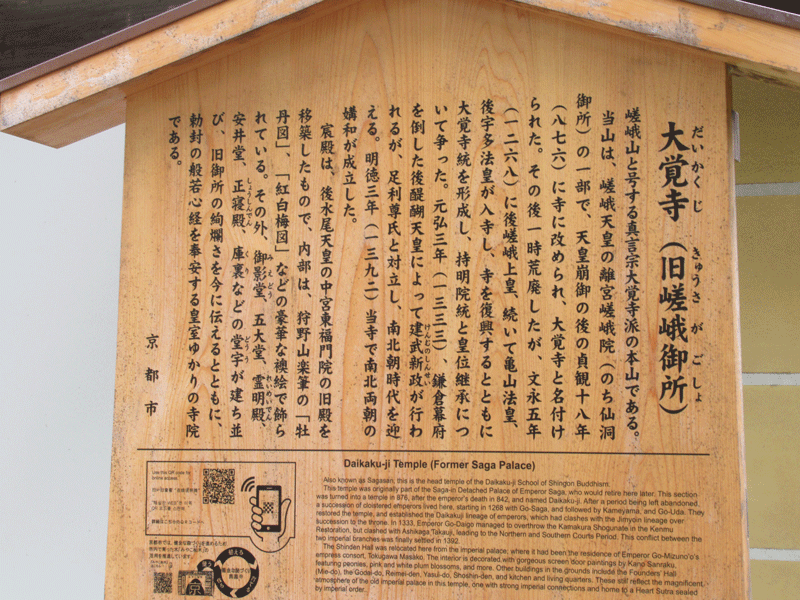 大覚寺（旧嵯峨御所）
だいかくじ
きゅうさがごしょ
嵯峨山と号する真言宗大覚寺派の本山である。
当山は、嵯峨天皇の離宮嵯峨院（のち仙洞
御所）の一部で、天皇崩御の後の貞観十八年
（八七六）に寺に改められ、大覚寺と名付け
られた。その後一時荒廃したが、文永五年
（一二六八）に後嵯峨上皇、続いて亀山法皇、
後宇多法皇が入寺し、寺を復興するとともに
大覚寺統を形成し、持明院統と皇位継承につ
いて争った。元弘三年（一三三三）、鎌倉幕府
を倒した後醍醐天皇によって建武新政が行わ
けんむのしんせい
れるが、足利尊氏と対立し、南北朝時代を迎
える。明徳三年（一三九二）当寺で南北両朝の
媾和が成立した。
宸殿は、後水尾天皇の中宮東福門院の旧殿を
移築したもので、内部は、狩野山楽筆の「牡
丹図」、「紅白梅図」などの豪華な襖絵で飾ら
れている。その外、御影堂、五大堂、霊明殿、
みえどう
れいめいでん
安井堂、正寝殿、庫裏などの堂宇が建ち並
しょうしんでん
くり
どうう
び、旧御所の絢爛さを今に伝えるとともに、
勅封の般若心経を奉安する皇室ゆかりの寺院
である。
京都市
Daikaku-ji Temple (Former Saga Palace)
Also known as Sagasan, this is the head temple of the Daikaku-ji School of Shingon Buddhism.
This temple was originally part of the Saga-in Detached Palace of Emperor Saga, who would retire here later. This section
was turned into a temple in 876, after the emperor's death in 842, and named Daikaku-ji. After a period being left abandoned,
a succession of cloistered emperors lived here, starting in 1268 with Go-Saga, and followed by Kameyama, and Go-Uda. They
restored the temple, and established the Daikakuji lineage of emperors, which had clashes with the Jimyoin lineage over
succession to the throne. In 1333, Emperor Go-Daigo managed to overthrow the Kamakura Shogunate in the Kenmu
Restoration, but clashed with Ashikaga Takauji, leading to the Northern and Southern Courts Period. This conflict between the
two imperial branches was finally settled in 1392.
The Shinden Hall was relocated here from the imperial palace, where it had been the residence of Emperor Go-Mizuno'o's
empress consort, Tokugawa Masako. The interior is decorated with gorgeous screen door paintings by Kano Sanraku,
featuring peonies, pink and white plum blossoms, and more. Other buildings in the grounds include the Founders' Hall
(Mie-do), the Godai-do, Reimei-den, Yasui-do, Shoshin-den, and kitchen and living quarters. These still reflect the magnificent
atmosphere of the old imperial palace in this temple, one with strong imperial connections and home to a Heart Sutra sealed
by imperial order.